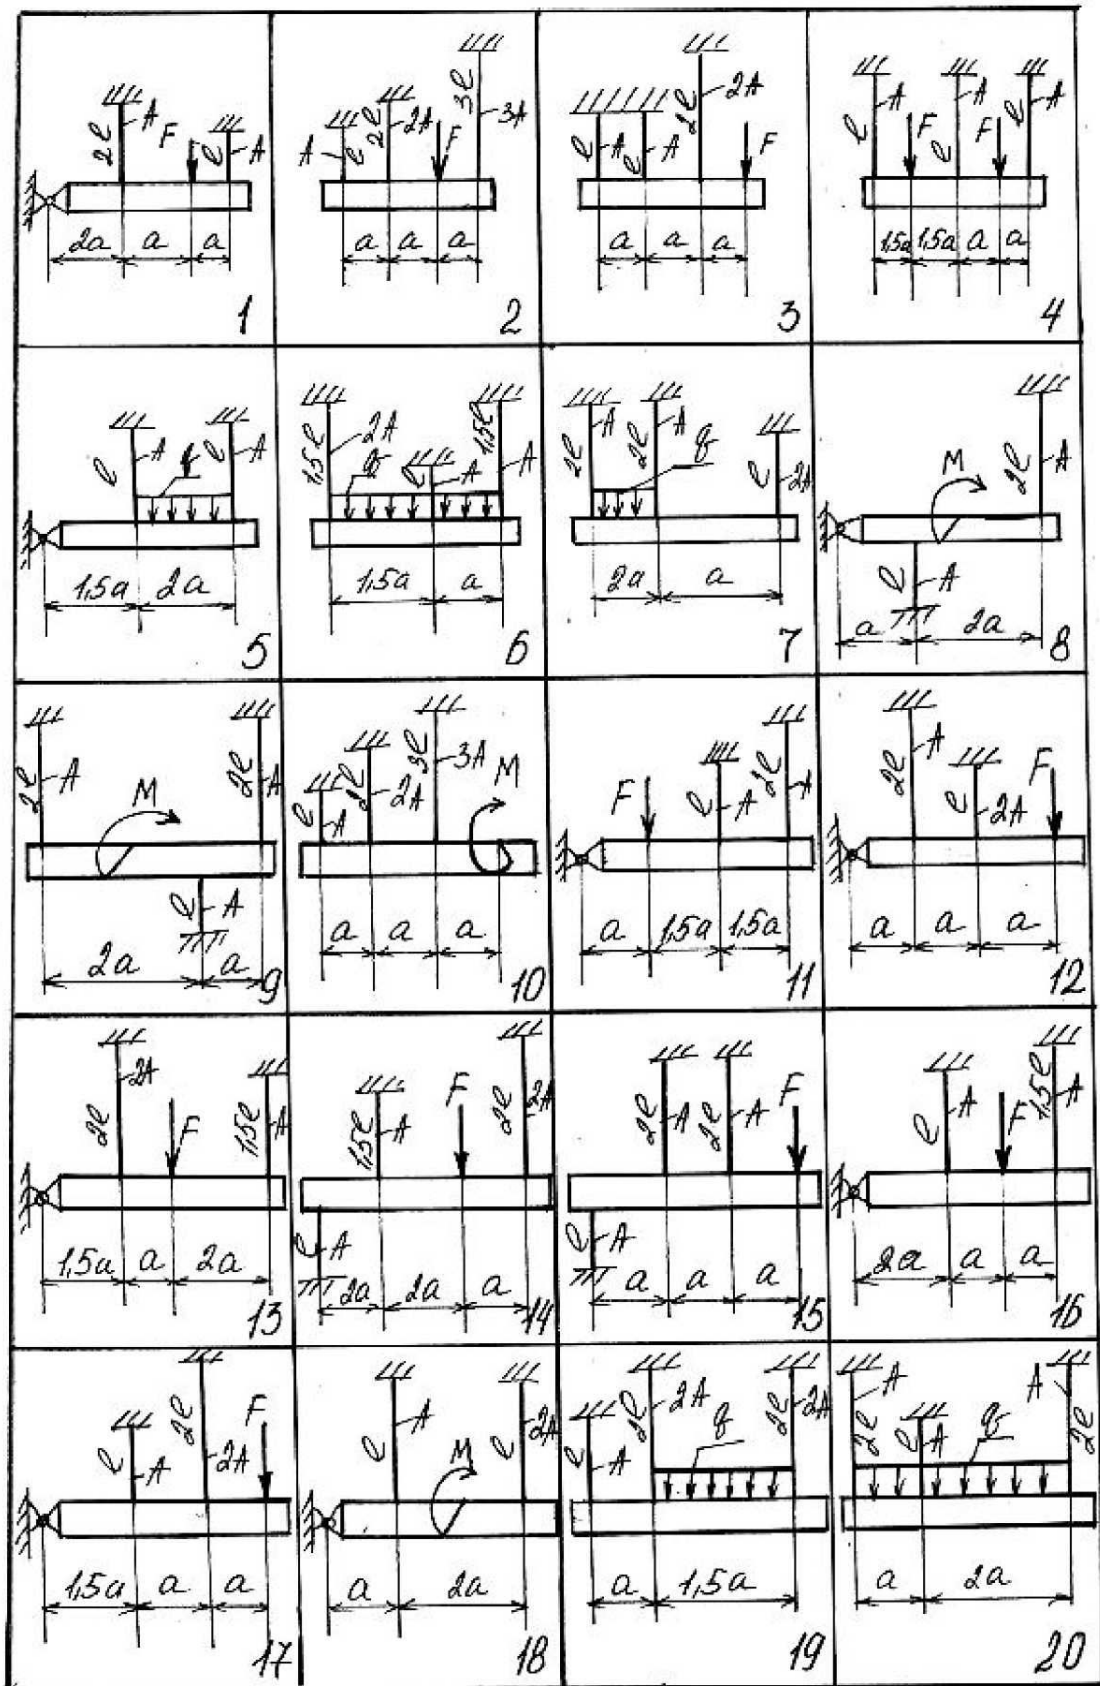 2l A F l A
2a a a
1
A l 2l 2A F 3l 3A
a a a
2
l A l A 2l 2A F
a a a
3
l A F l A F l A
1,5a 1,5a a a
4
l A l A
1,5a 2a
5
1,5l 2A q l A 1,5l A
1,5a a
6
2l A 2l A q l 2A
2a a
7
M 2l A
l A
a 2a
8
2l A M 2l A
l A
2a a
9
l A 2l 2A 3l 3A M
a a a
10
F l A 2l A
a 1,5a 1,5a
11
2l A l 2A F
a a a
12
2l 2A F 1,5l A
1,5a a 2a
13
1,5l A F 2l 2A
l A
2a 2a a
14
2l A 2l A F
l A
a a a
15
l A F 1,5l A
2a a a
16
l A 2l 2A F
1,5a a a
17
l A M l 2A
a 2a
18
l A 2l 2A q 2l 2A
a 1,5a
19
2l A l A q A 2l
a 2a
20